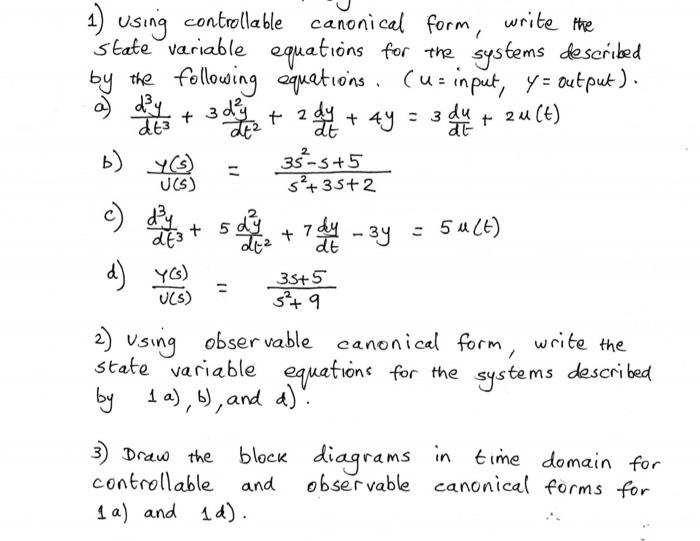 1) Using controllable canonical form, write the
state variable equations for the systems described
by the following equations. (u = input, y = output).
a) d³y/dt³ + 3 d²y/dt² + 2 dy/dt + 4y = 3 du/dt + 2u(t)
b) Y(s)/U(s) = 3s²-s+5/s²+3s+2
c) d³y/dt³ + 5 d²y/dt² + 7 dy/dt - 3y = 5u(t)
d) Y(s)/U(s) = 3s+5/s²+9
2) Using observable canonical form, write the
state variable equations for the systems described
by 1a), b), and d).
3) Draw the block diagrams in time domain for
controllable and observable canonical forms for
1a) and 1d).